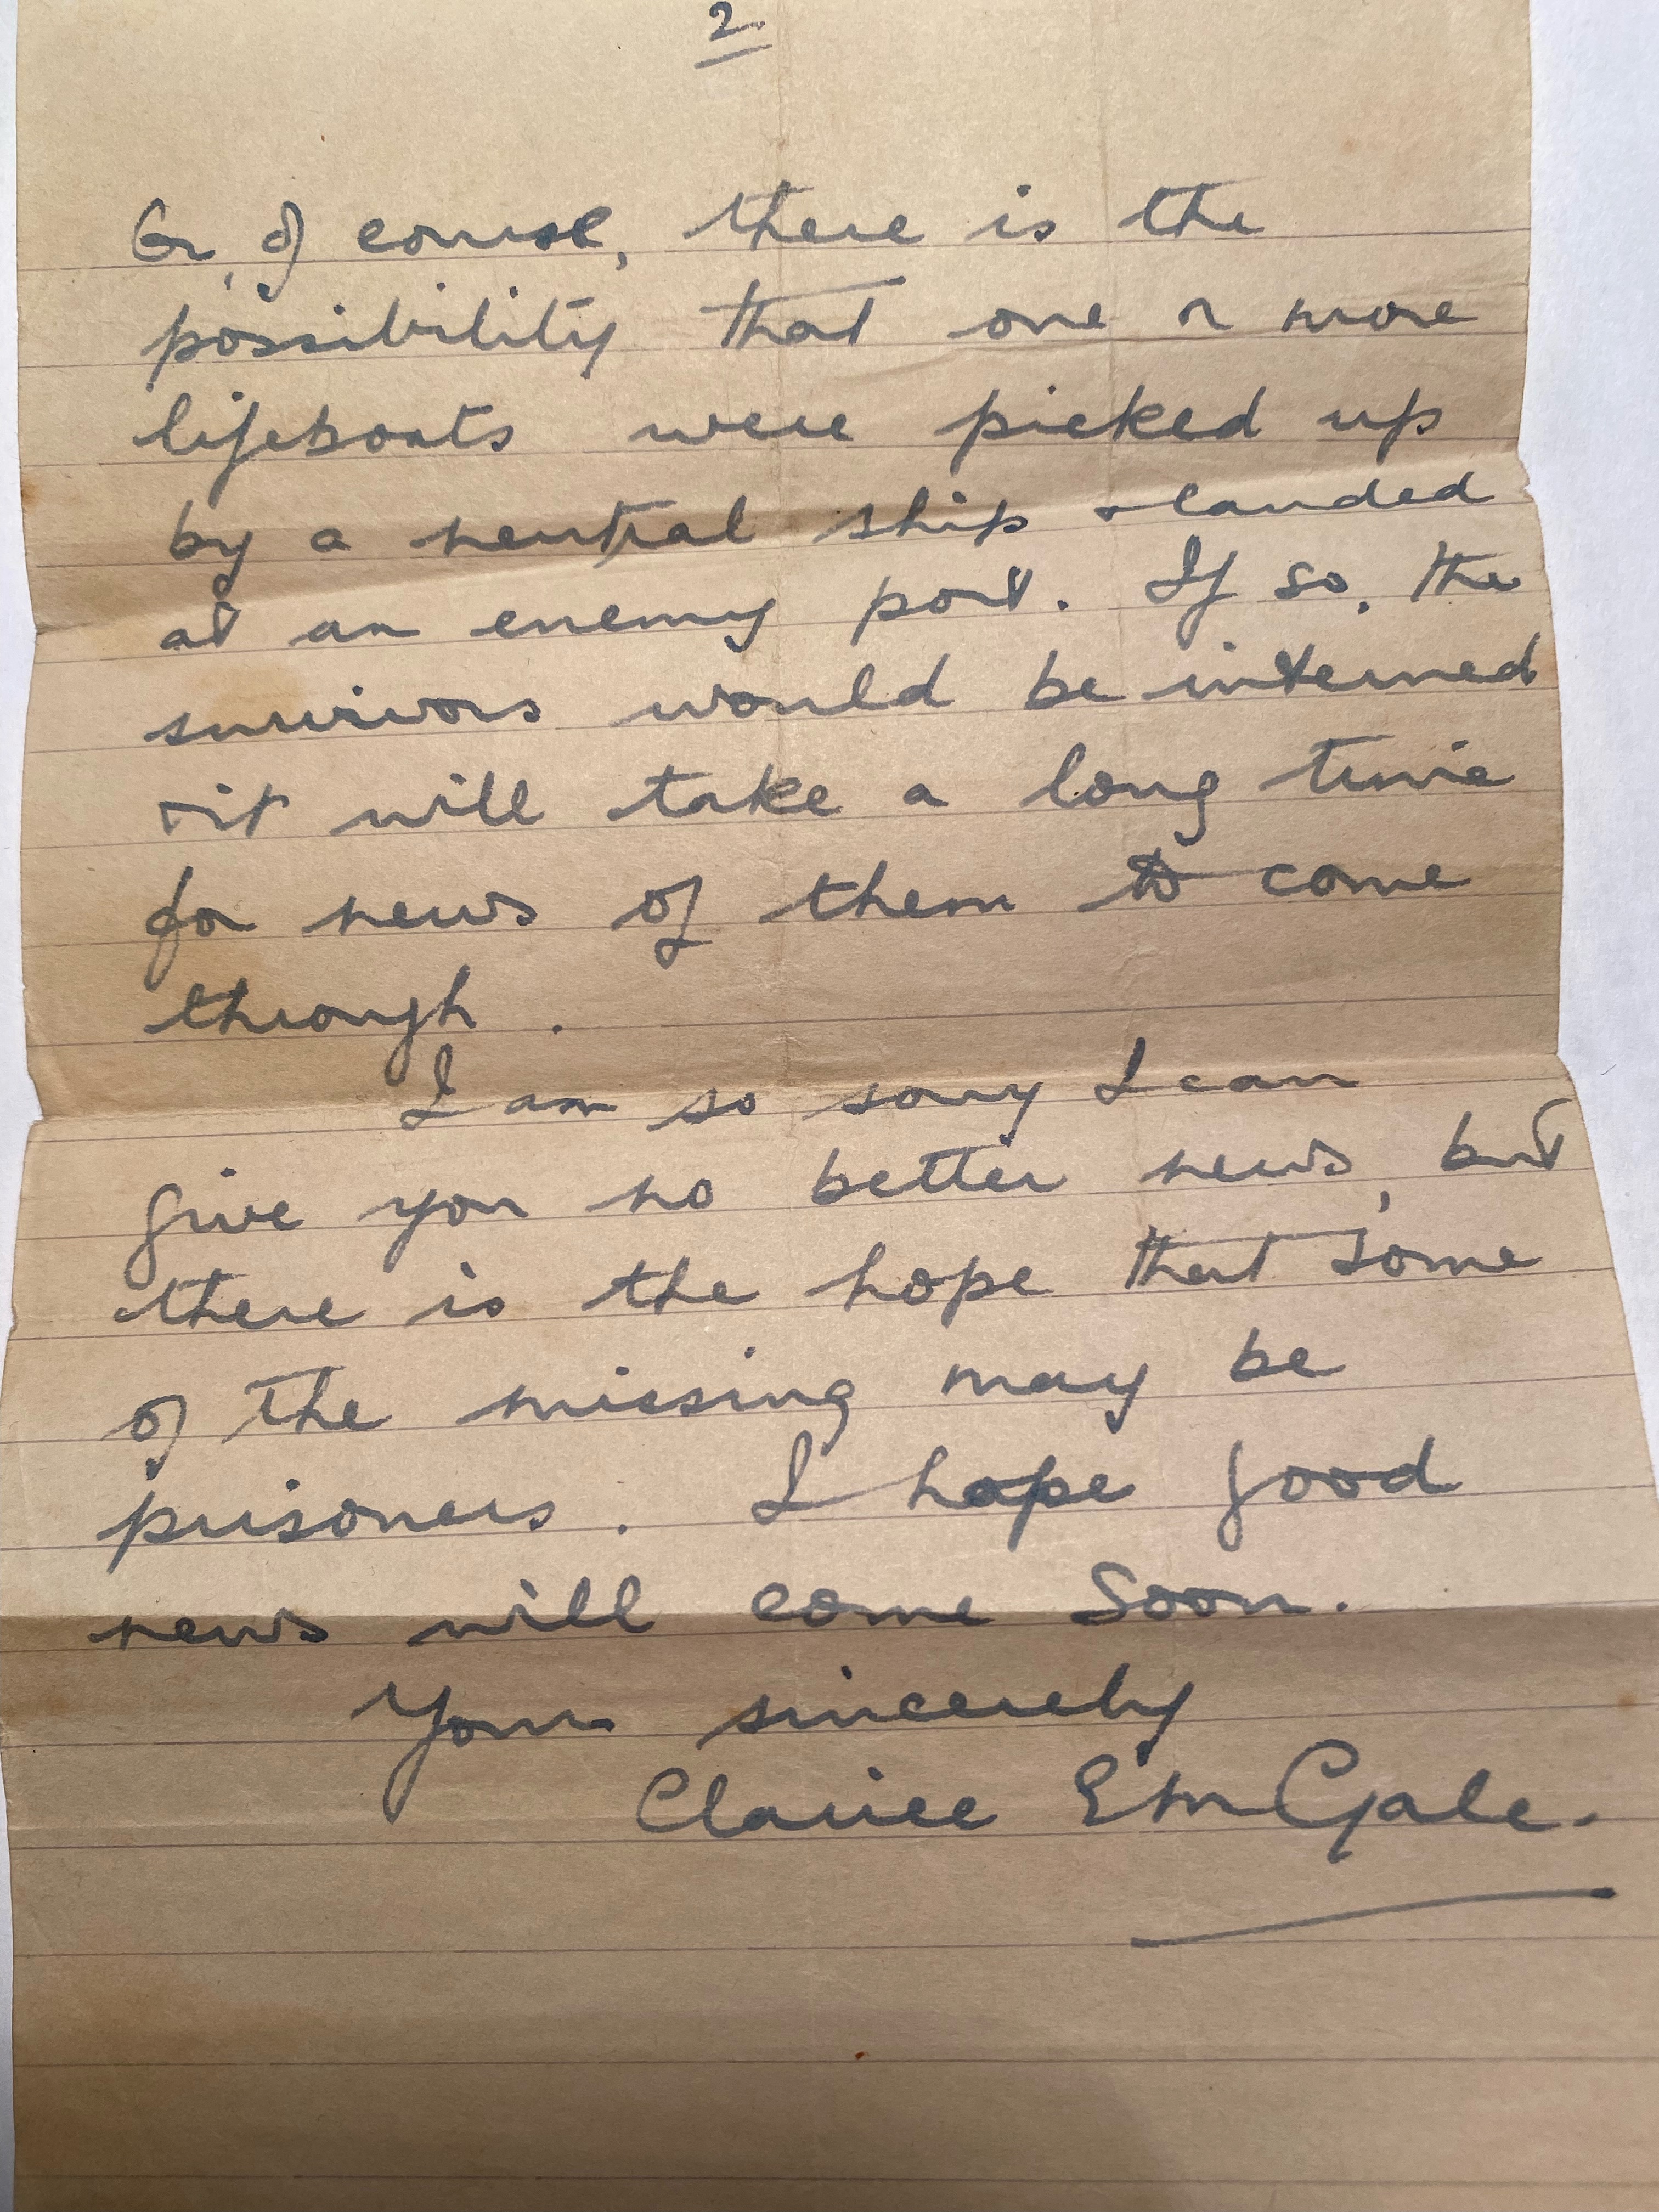 2
Or, of course, there is the
possibility that one or more
lifeboats were picked up
by a neutral ship & landed
at an enemy port. If so, the
survivors would be interned
& it will take a long time
for news of them to come
through.
I am so sorry I can
give you no better news, but
there is the hope that some
of the missing may be
prisoners. I hope good
news will come soon.
Yours sincerely
Clarice E M Gale.